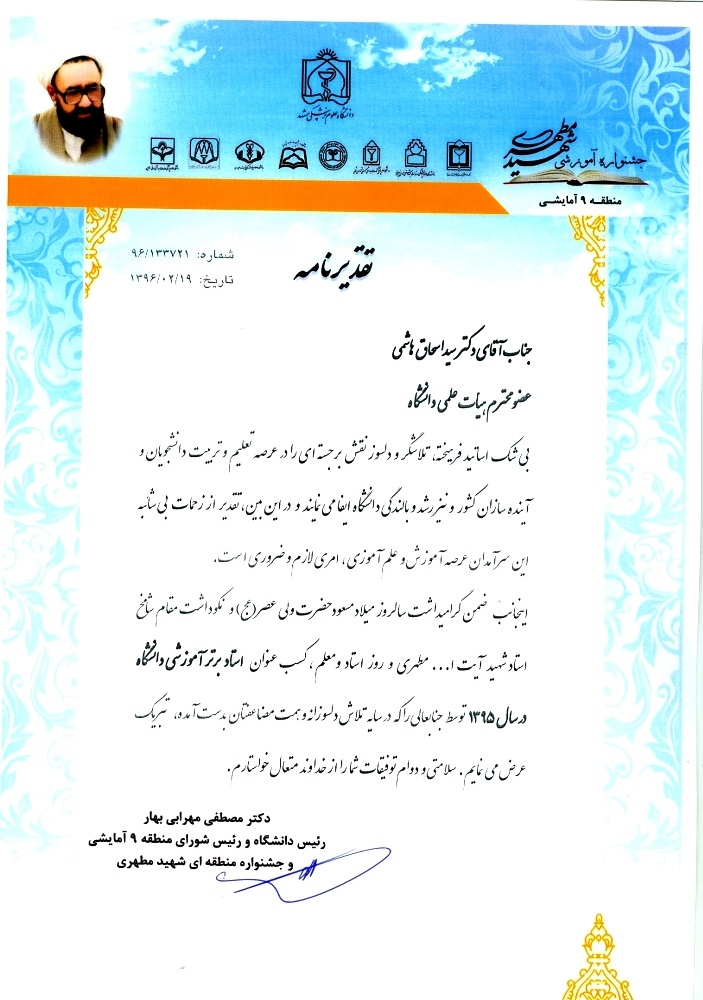 دانشگاه علوم پزشکی مشهد
جشنواره آموزشی
شهید مطهری
منطقه ۹ آمایشی
شماره: ۹۶/۱۳۳۷۲۱
تاریخ: ۱۳۹۶/۰۲/۱۹
تقدیرنامه
جناب آقای دکتر سید اسحاق هاشمی
عضو محترم هیأت علمی دانشگاه
بی شک اساتید فرهیخته، تلاشگر و دلسوز نقش برجسته ای را در عرصه تعلیم و تربیت دانشجویان و
آینده سازان کشور و نیز رشد و بالندگی دانشگاه ایفا می نمایند و در این بین، تقدیر از زحمات بی شائبه
این سرآمدان عرصه آموزش و علم آموزی، امری لازم و ضروری است.
اینجانب ضمن گرامیداشت سالروز میلاد مسعود حضرت ولی عصر(عج) و نکوداشت مقام شامخ
استاد شهید آیت ا... مطهری و روز استاد و معلم، کسب عنوان استاد برتر آموزشی دانشگاه
در سال ۱۳۹۵ توسط جنابعالی را که در سایه تلاش دلسوزانه و همت مضاعفتان بدست آمده، تبریک
عرض می نمایم. سلامتی و دوام توفیقات شما را از خداوند متعال خواستارم.
دکتر مصطفی مهرابی بهار
رئیس دانشگاه و رئیس شورای منطقه ۹ آمایشی
و جشنواره منطقه ای شهید مطهری